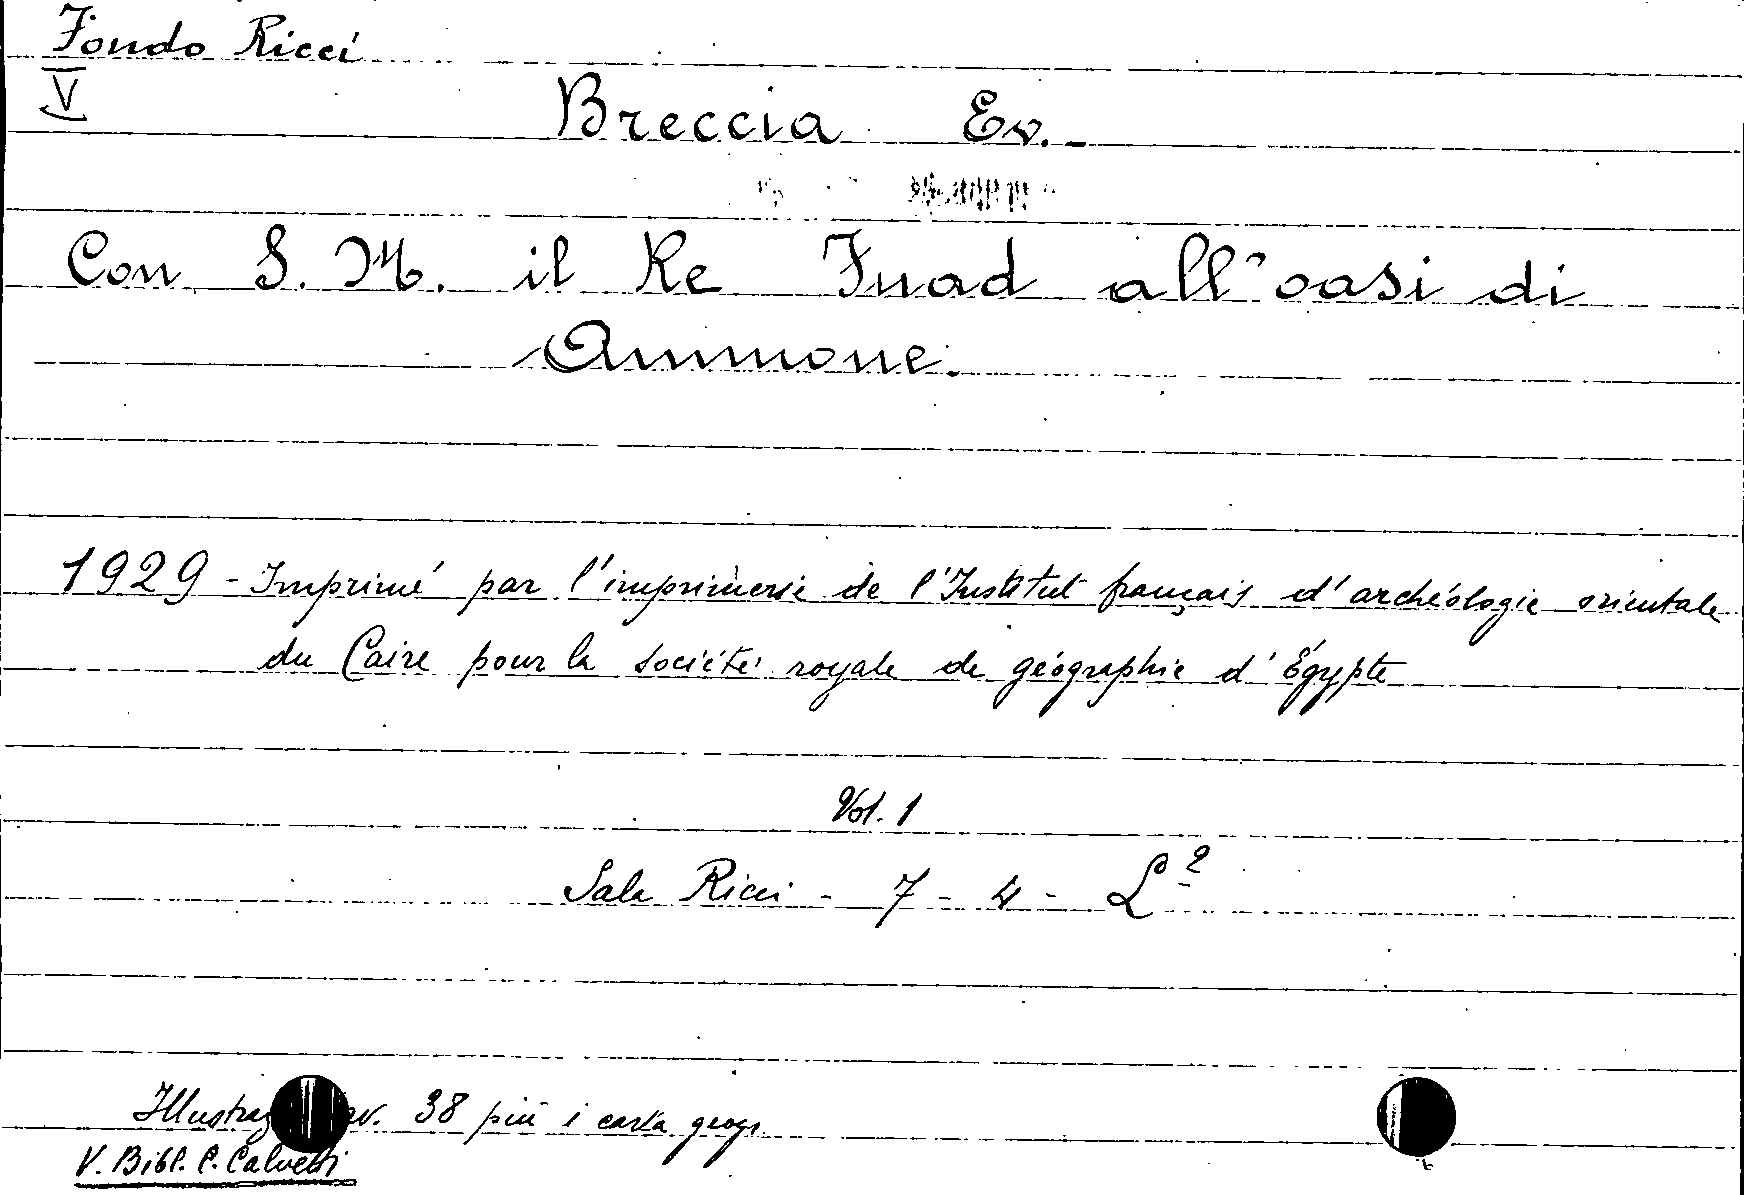 Fondo Ricci
V
Breccia Ev.-
Con S. M. il Re Fuad all'oasi di
Ammone.
1929 - Imprimé par l'imprimerie de l'Institut français d'archéologie orientale
du Caire pour la société royale de géographie d'Égypte
Vol. 1
Sala Ricci - 7 - 4 - L 2
38 più 1 carta geogr.
V. Bibl. C. Calvetti